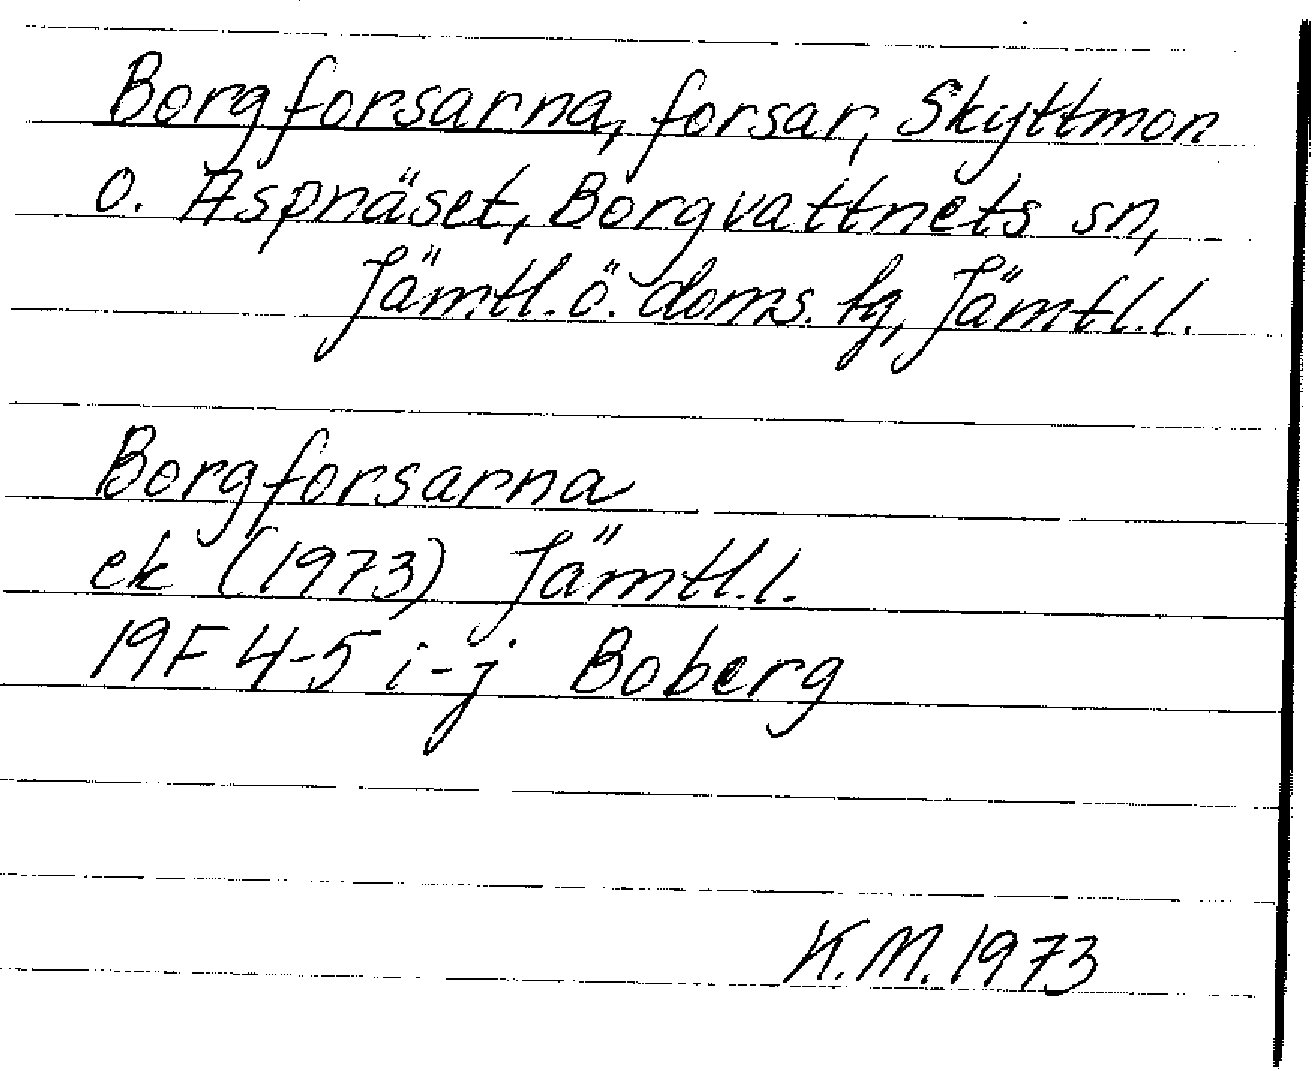 Borgforsarna, forsar, Skyttmon
o. Aspnäset, Borgvattnets sn,
Jämtl. ö. doms. tg, Jämtl.l.
Borgforsarna
ek (1973) Jämtl.l.
19F 4-5 i-j Boberg
K.M. 1973